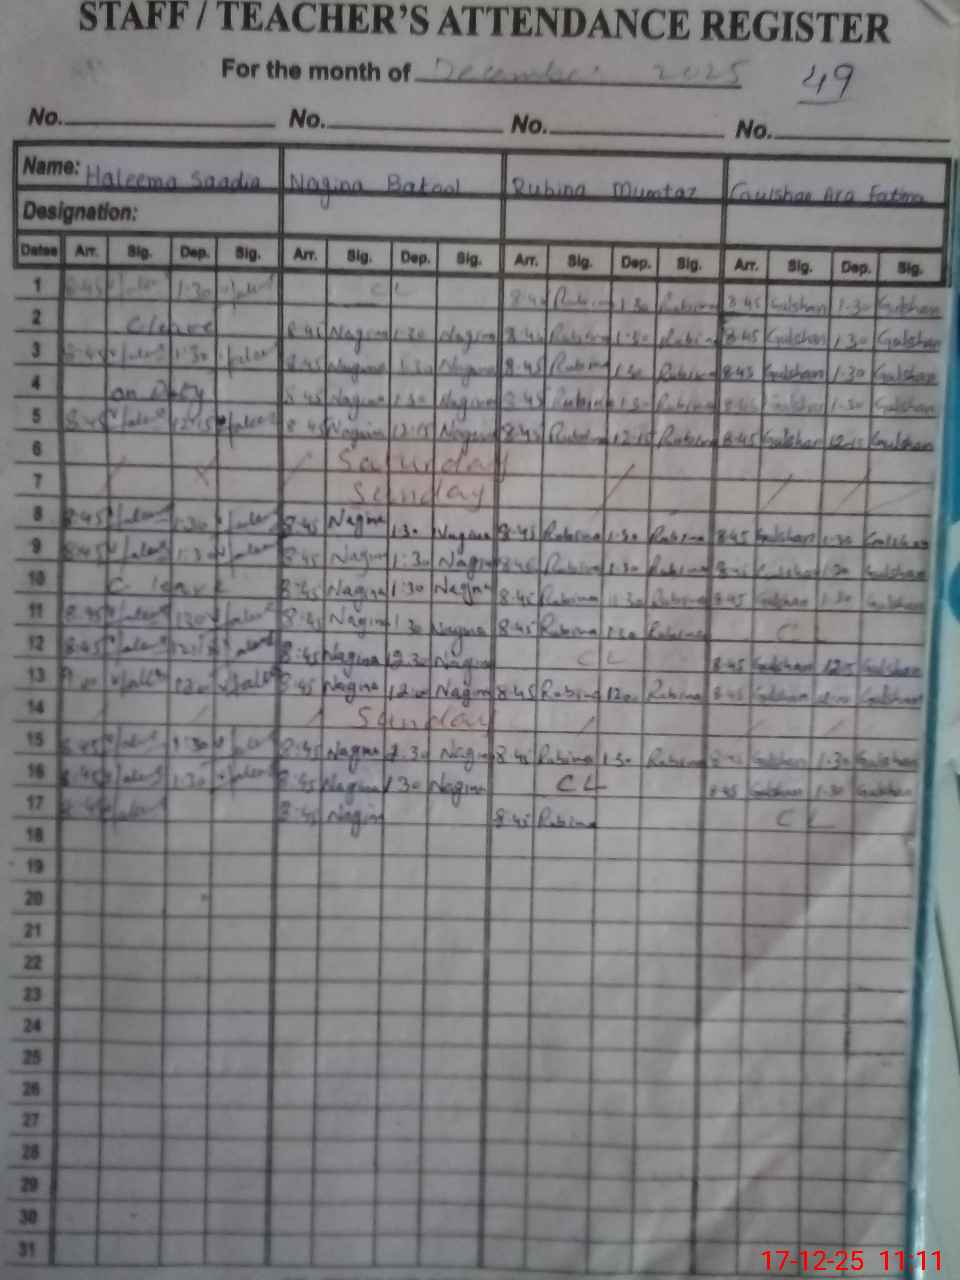 STAFF / TEACHER'S ATTENDANCE REGISTER
For the month of December 2025 49
No. No. No. No.
Name: Haleema Saadia Nagina Batool Rubina Mumtaz Gulshan Ara Fatima
Designation:
Dates Arr. Sig. Dep. Sig. Arr. Sig. Dep. Sig. Arr. Sig. Dep. Sig. Arr. Sig. Dep. Sig.
1 8:45 1:30 CL 8:45 Rubina 1:30 Rubina 8:45 Gulshan 1:30 Gulshan
2 C leave 8:45 Nagina 1:30 Nagina 8:45 Rubina 1:30 Rubina 8:45 Gulshan 1:30 Gulshan
3 8:45 1:30 8:45 Nagina 1:30 Nagina 8:45 Rubina 1:30 Rubina 8:45 Gulshan 1:30 Gulshan
4 on Duty 8:45 Nagina 1:30 Nagina 8:45 Rubina 1:30 Rubina 8:45 Gulshan 1:30 Gulshan
5 8:45 12:15 8:45 Nagina 12:15 Nagina 8:45 Rubina 12:15 Rubina 8:45 Gulshan 12:15 Gulshan
6 Saturday
7 Sunday
8 8:45 1:30 8:45 Nagina 1:30 Nagina 8:45 Rubina 1:30 Rubina 8:45 Gulshan 1:30 Gulshan
9 8:45 1:30 8:45 Nagina 1:30 Nagina 8:45 Rubina 1:30 Rubina 8:45 Gulshan 1:30 Gulshan
10 C leave 8:45 Nagina 1:30 Nagina 8:45 Rubina 1:30 Rubina 8:45 Gulshan 1:30 Gulshan
11 8:45 1:30 8:45 Nagina 1:30 Nagina 8:45 Rubina 1:30 Rubina CL
12 8:45 12:15 8:45 Nagina 12:30 Nagina CL 8:45 Gulshan 12:15 Gulshan
13 8:45 Nagina 12:00 Nagina 8:45 Rubina 12:00 Rubina 8:45 Gulshan 12:00 Gulshan
14 Sunday
15 8:45 1:30 8:45 Nagina 1:30 Nagina 8:45 Rubina 1:30 Rubina 8:45 Gulshan 1:30 Gulshan
16 8:45 1:30 8:45 Nagina 1:30 Nagina CL 8:45 Gulshan 1:30 Gulshan
17 8:45 8:45 Nagina 8:45 Rubina CL
18
19
20
21
22
23
24
25
26
27
28
29
30
31
17-12-25 11:11